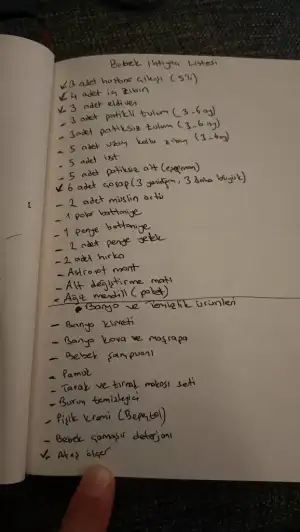 Bebek İhtiyaç Listesi
✓ 3 adet hastane çıkışı (5'li)
✓ 4 adet iç zıbın
✓ 3 adet eldiven
- 3 adet patikli tulum (3-6 ay)
- 3 adet patiksiz tulum (3-6 ay)
- 5 adet uzun kollu zıbın (3-6 ay)
- 5 adet üst
- 5 adet patiksiz alt (eşofman)
✓ 6 adet çorap (3 yenidoğan, 3 daha büyük)
- 2 adet müslin örtü
- 1 polar battaniye
- 1 penye battaniye
- 2 adet penye yelek
- 2 adet hırka
- Astronot mont
- Alt değiştirme matı
- Ağız mendili (paket)
• Banyo ve Temizlik Ürünleri
- Banyo küveti
- Banyo kova ve maşrapa
- Bebek şampuanı
- Pamuk
- Tarak ve tırnak makası seti
- Burun temizleyici
- Pişik kremi (Bepanthol)
- Bebek çamaşır deterjanı
✓ Ateş ölçer